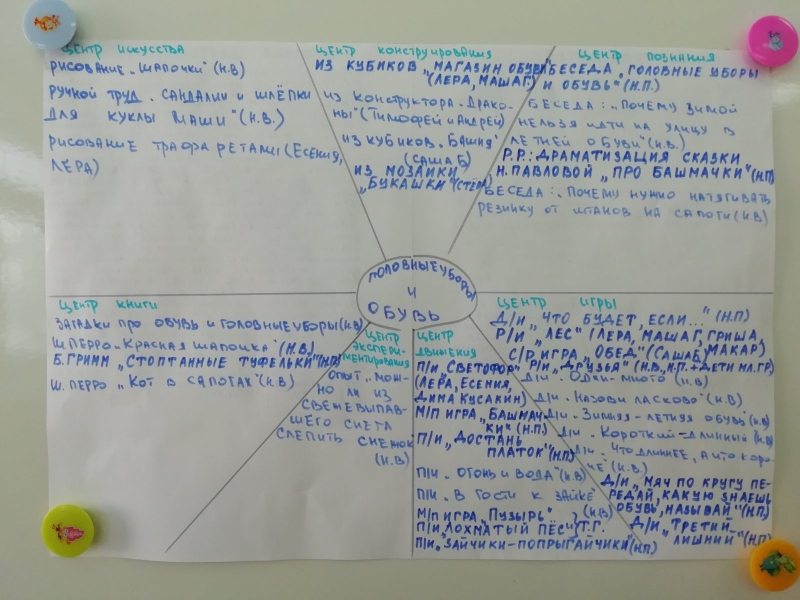 ЦЕНТР ИСКУССТВА
РИСОВАНИЕ „ШАПОЧКИ" (Н.В)
РУЧНОЙ ТРУД „САНДАЛИИ И ШЛЁПКИ
ДЛЯ КУКЛЫ МАШИ" (Н.В.)
РИСОВАНИЕ ТРАФАРЕТАМИ (ЕСЕНИЯ,
ЛЕРА)
ЦЕНТР КОНСТРУИРОВАНИЯ
ИЗ КУБИКОВ „МАГАЗИН ОБУВИ"
(ЛЕРА, МАША Г.)
ИЗ КОНСТРУКТОРА „ДРАКО-
НЫ" (ТИМОФЕЙ И АНДРЕЙ)
ИЗ КУБИКОВ „БАШНЯ"
(САША Б)
ИЗ МОЗАИКИ
„БУКАШКИ" (СТЕПА)
ЦЕНТР ПОЗНАНИЯ
БЕСЕДА „ГОЛОВНЫЕ УБОРЫ
И ОБУВЬ" (Н.П.)
БЕСЕДА: „ПОЧЕМУ ЗИМОЙ
НЕЛЬЗЯ ИДТИ НА УЛИЦУ В
ЛЕТНЕЙ ОБУВИ" (Н.В.)
Р.Р.: ДРАМАТИЗАЦИЯ СКАЗКИ
Н. ПАВЛОВОЙ „ПРО БАШМАЧКИ" (Н.П)
БЕСЕДА: „ПОЧЕМУ НУЖНО НАТЯГИВАТЬ
РЕЗИНКУ ОТ ШТАНОВ НА САПОГИ (Н.В)
ГОЛОВНЫЕ УБОРЫ
И
ОБУВЬ
ЦЕНТР КНИГИ
ЗАГАДКИ ПРО ОБУВЬ И ГОЛОВНЫЕ УБОРЫ (Н.В)
Ш. ПЕРРО „КРАСНАЯ ШАПОЧКА" (Н.В.)
Б. ГРИММ „СТОПТАННЫЕ ТУФЕЛЬКИ" (Н.П)
Ш. ПЕРРО „КОТ В САПОГАХ" (Н.В)
ЦЕНТР
ЭКСПЕРИ-
МЕНТИРОВАНИЯ
ОПЫТ „МОЖ-
НО ЛИ ИЗ
СВЕЖЕВЫПАВ-
ШЕГО СНЕГА
СЛЕПИТЬ СНЕЖОК
(Н.В)
ЦЕНТР
ДВИЖЕНИЯ
П/И „СВЕТОФОР"
(ЛЕРА, ЕСЕНИЯ,
ДИМА КУСАКИН)
М/П ИГРА „БАШМАЧ-
КИ" (Н.П.)
П/И „ДОСТАНЬ
ПЛАТОК" (Н.П)
П/И „ОГОНЬ И ВОДА" (Н.В)
П/И „В ГОСТИ К ЗАЙКЕ"
(Н.В)
М/П ИГРА „ПУЗЫРЬ"
П/И „ЛОХМАТЫЙ ПЁС" } Т.Г.
П/И „ЗАЙЧИКИ-ПОПРЫГАЙЧИКИ" (Н.П.)
ЦЕНТР ИГРЫ
Д/И „ЧТО БУДЕТ, ЕСЛИ..." (Н.П)
Р/И „ЛЕС" (ЛЕРА, МАША Г, ГРИША,
МАКАР)
С/Р ИГРА „ОБЕД" (САША Б,
Р/И „ДРУЗЬЯ" (Н.В, Н.П. + ДЕТИ МЛ.ГР)
Д/И „ОДИН-МНОГО" (Н.В)
Д/И „НАЗОВИ ЛАСКОВО" (Н.В)
Д/И „ЗИМНЯЯ-ЛЕТНЯЯ ОБУВЬ" (Н.В)
Д/И „КОРОТКИЙ-ДЛИННЫЙ" (Н.В)
Д/И „ЧТО ДЛИННЕЕ, А ЧТО КОРО-
ЧЕ" (Н.В)
Д/И „МЯЧ ПО КРУГУ ПЕ-
РЕДАЙ, КАКУЮ ЗНАЕШЬ
ОБУВЬ, НАЗЫВАЙ" (Н.П)
Д/И „ТРЕТИЙ-
ЛИШНИЙ" (Н.П)